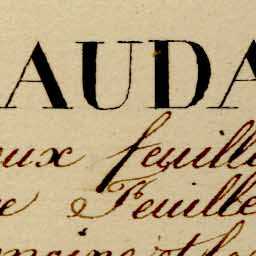 AUDA
eux feuille
e Feuille